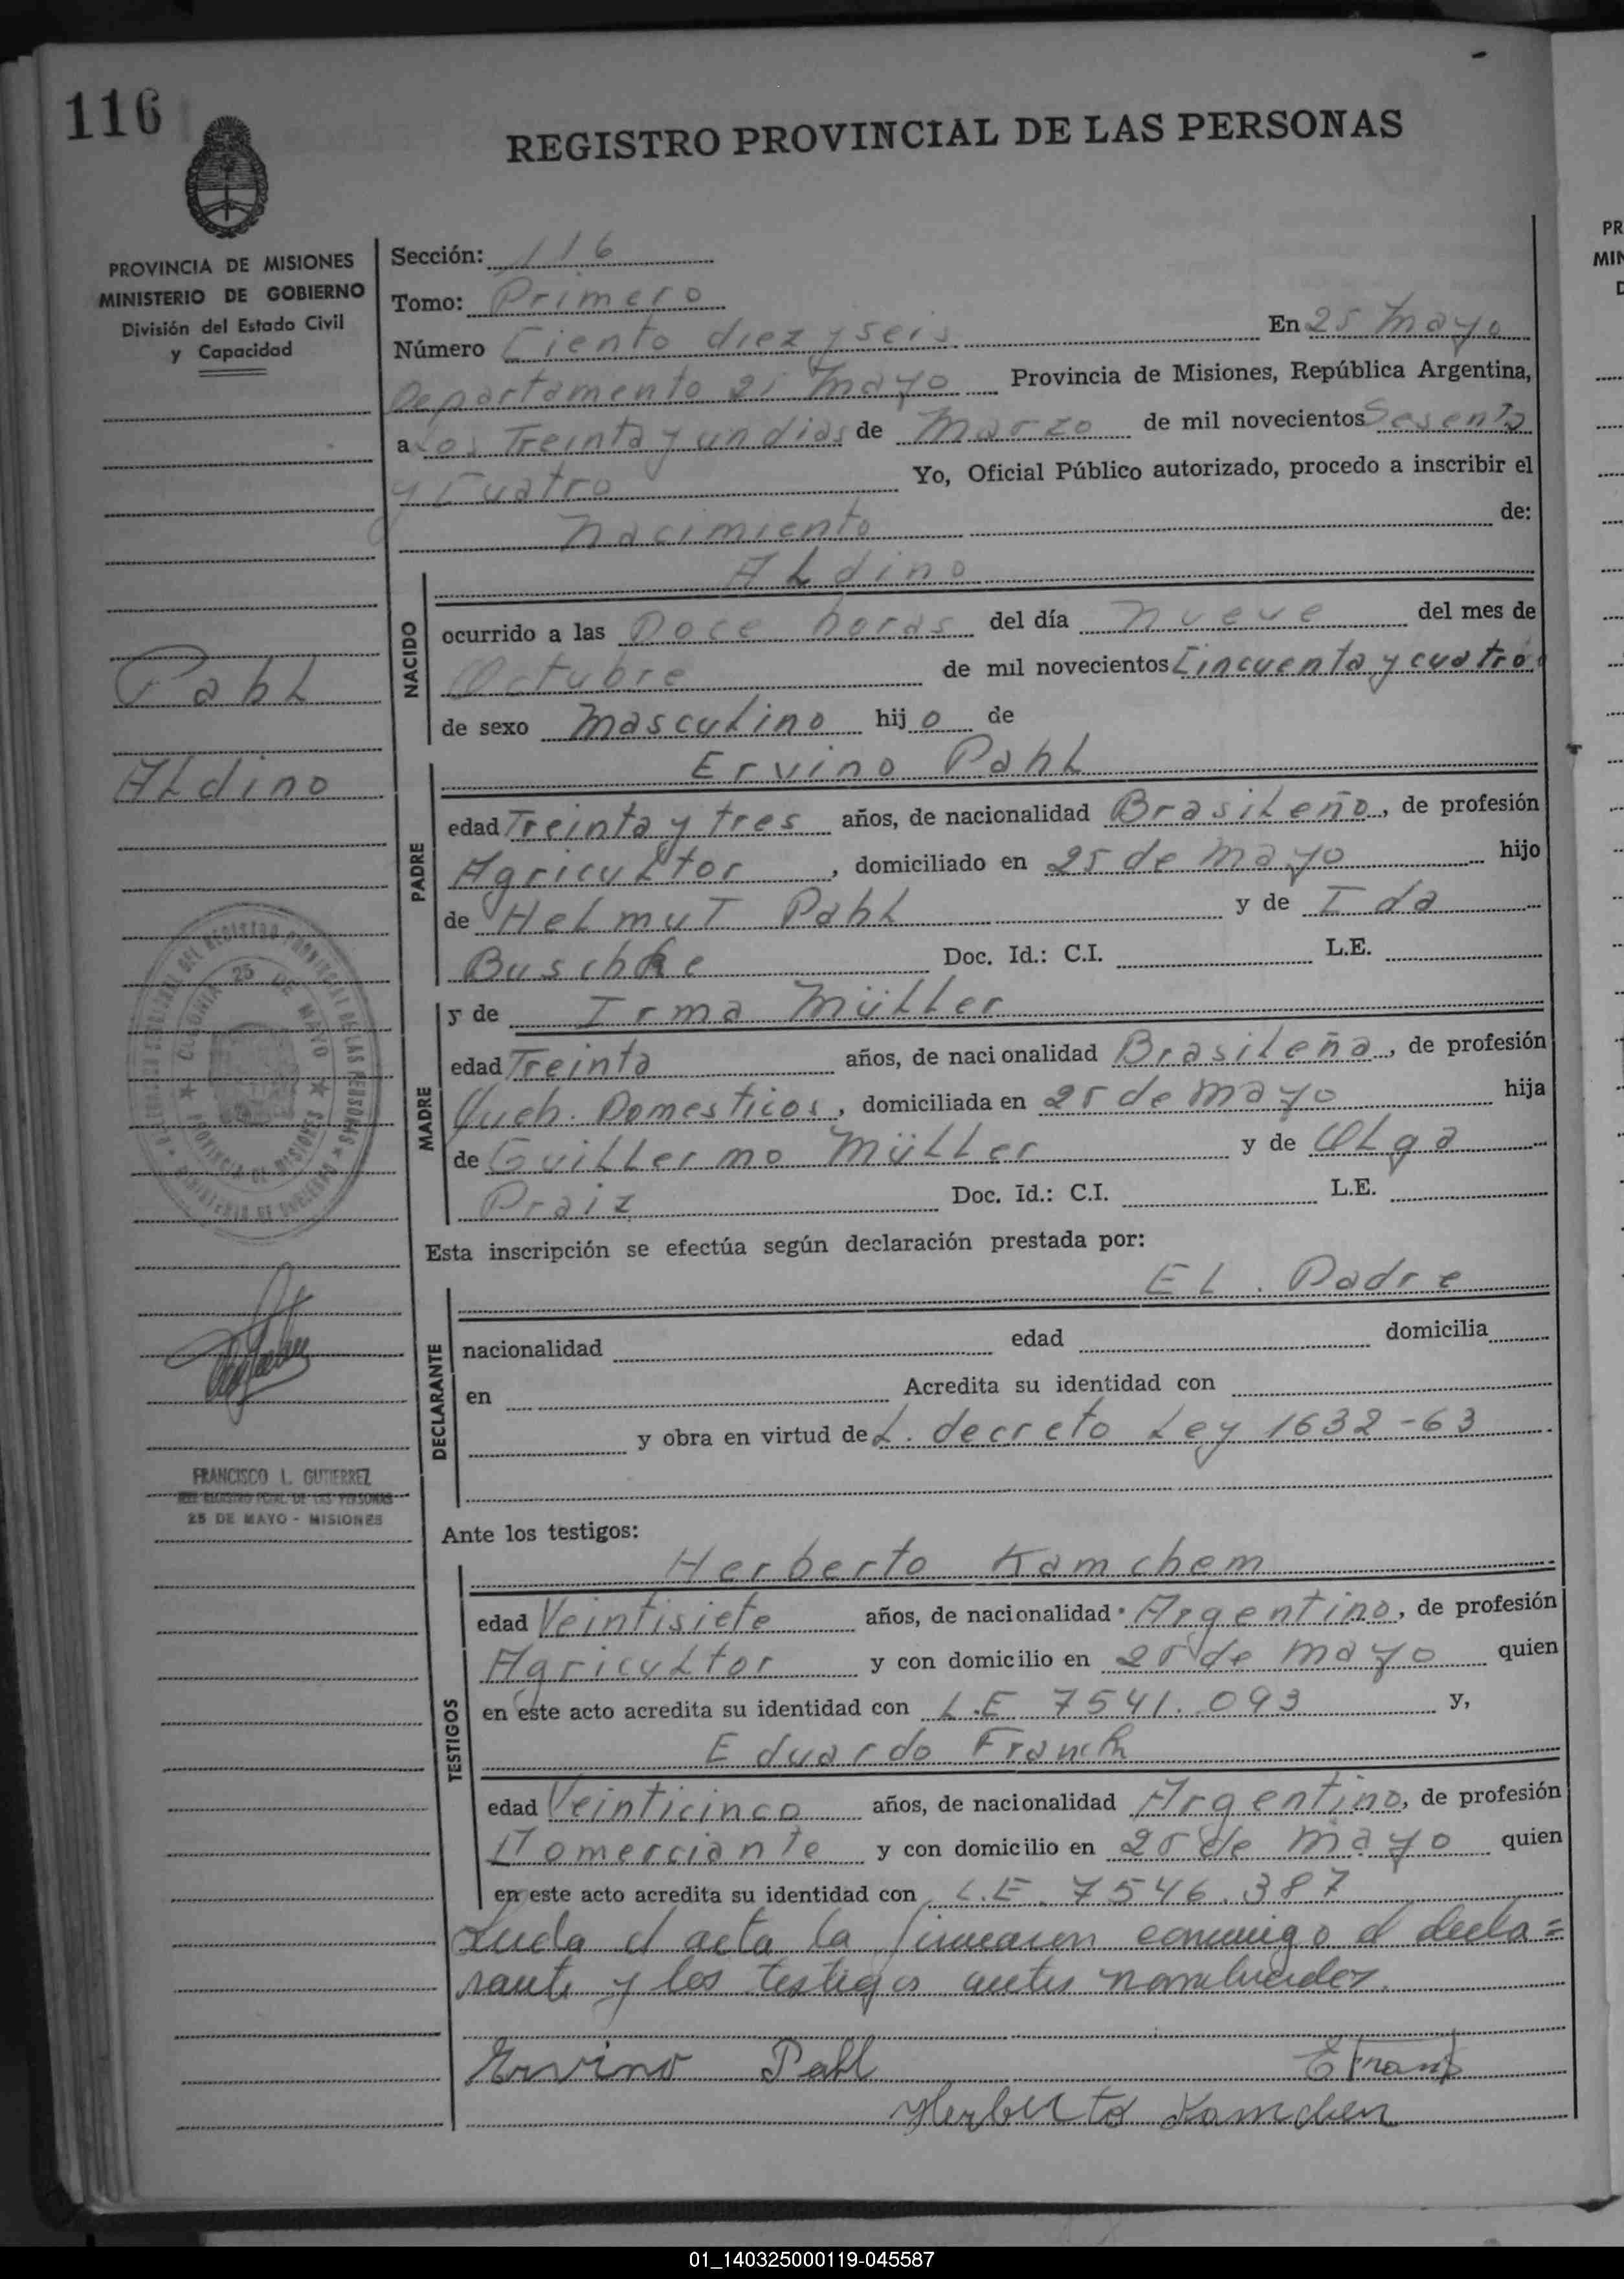 116
REGISTRO PROVINCIAL DE LAS PERSONAS
PROVINCIA DE MISIONES
MINISTERIO DE GOBIERNO
División del Estado Civil
y Capacidad
Sección: 116
Tomo: Primero
Número Ciento diez y seis En 25 Mayo
Departamento 25 Mayo Provincia de Misiones, República Argentina,
a los Treinta y un dias de Marzo de mil novecientos Sesenta
y Cuatro Yo, Oficial Público autorizado, procedo a inscribir el
Nacimiento de:
ALdino
NACIDO
ocurrido a las Doce horas del día nueve del mes de
Octubre de mil novecientos Cincuenta y cuatro
de sexo Masculino hijo de
Pahl
ALdino
PADRE
Ervino Pahl
edad Treinta y tres años, de nacionalidad Brasileño, de profesión
Agricultor, domiciliado en 25 de mayo hijo
de Helmut Pahl y de Ida
Buschke Doc. Id.: C.I. L.E.
MADRE
y de Irma Müller
edad Treinta años, de nacionalidad Brasileña, de profesión
Queh. Domesticos, domiciliada en 25 de mayo hija
de Guillermo Müller y de Olga
Praiz Doc. Id.: C.I. L.E.
COLONIA 25 DE MAYO
PROVINCIA DE MISIONES
Esta inscripción se efectúa según declaración prestada por:
DECLARANTE
EL. Padre
nacionalidad edad domicilia
en Acredita su identidad con
y obra en virtud de L. decreto Ley 1632-63
FRANCISCO L. GUTIERREZ
JEFE REGISTRO PCIAL. DE LAS PERSONAS
25 DE MAYO - MISIONES
Ante los testigos:
TESTIGOS
Herberto Kamchem
edad Veintisiete años, de nacionalidad Argentino, de profesión
Agricultor y con domicilio en 25 de mayo quien
en este acto acredita su identidad con L.E 7541.093 y,
Eduardo Franck
edad Veinticinco años, de nacionalidad Argentino, de profesión
Comerciante y con domicilio en 25 de mayo quien
en este acto acredita su identidad con L.E. 7546.387
Leida el acta la firmaron conmigo el decla=
rante y los testigos antes nombrados.
Ervino Pahl
Herberto Kamchen
01_140325000119-045587